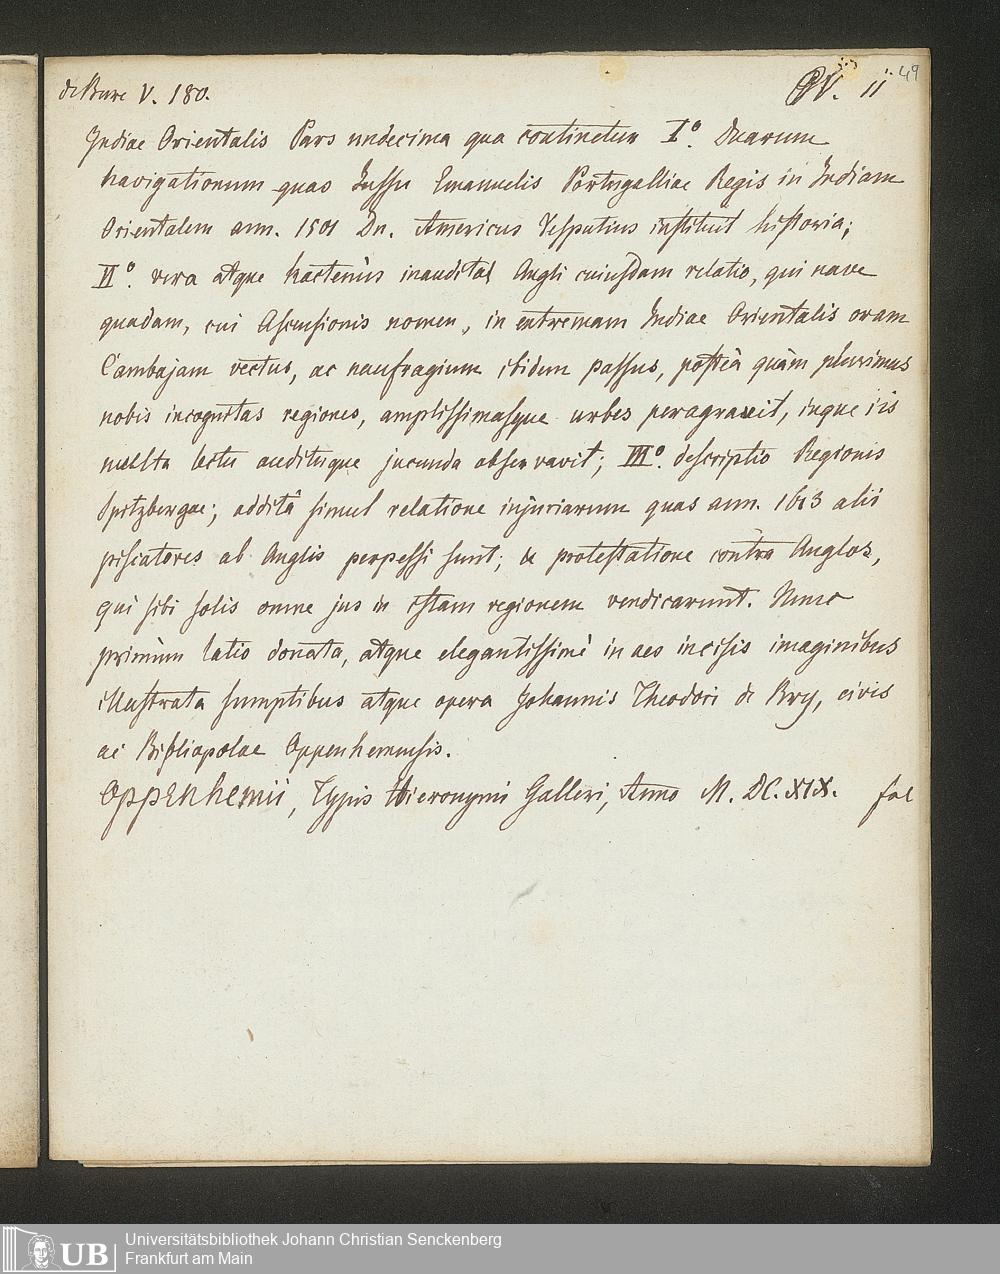 de Bure V. 180.
49
OV. 11
Indiae Orientalis Pars undecima qua continetur I°. Duarum
navigationum quas Jussu Emanuelis Portugalliae Regis in Indiam
Orientalem ann. 1501 Dn. Americus Vesputius instituit historia;
II°. vera atque hactenùs inaudita Angli cuiusdam relatio, qui nave
quadam, cui Ascensionis nomen, in extremam Indiae Orientalis oram
Cambajam vectus, ac naufragium ibidem passus, posteà quàm plurimas
nobis incognitas regiones, amplissimasque urbes peragraxit, inque iis
multa lectu audituque jucunda observavit; III°. descriptio Regionis
Spitzbergae; additâ simul relatione injuriarum quas ann. 1613 alii
piscatores ab Anglis perpessi sunt; & protestatione contra Anglos,
qui sibi solis omne jus in istam regionem vendicarunt. Nunc
primùm latio donata, atque elegantissimè in aes incisis imaginibus
illustrata sumptibus atque opera Johannis Theodori de Bry, civis
ac Bibliopolae Oppenhemensis.
Oppenhemii, Typis Hieronymi Galleri, Anno M. DC. XIX. fol
UB
Universitätsbibliothek Johann Christian Senckenberg
Frankfurt am Main